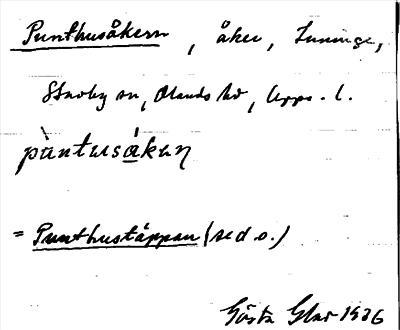 Punthusåkern, åker, Inninge,
Stavby sn, Olands hd, Upps. l.
pùntusákɐn
= Punthustäppan (se d. o.)
Gösta Glas 1936